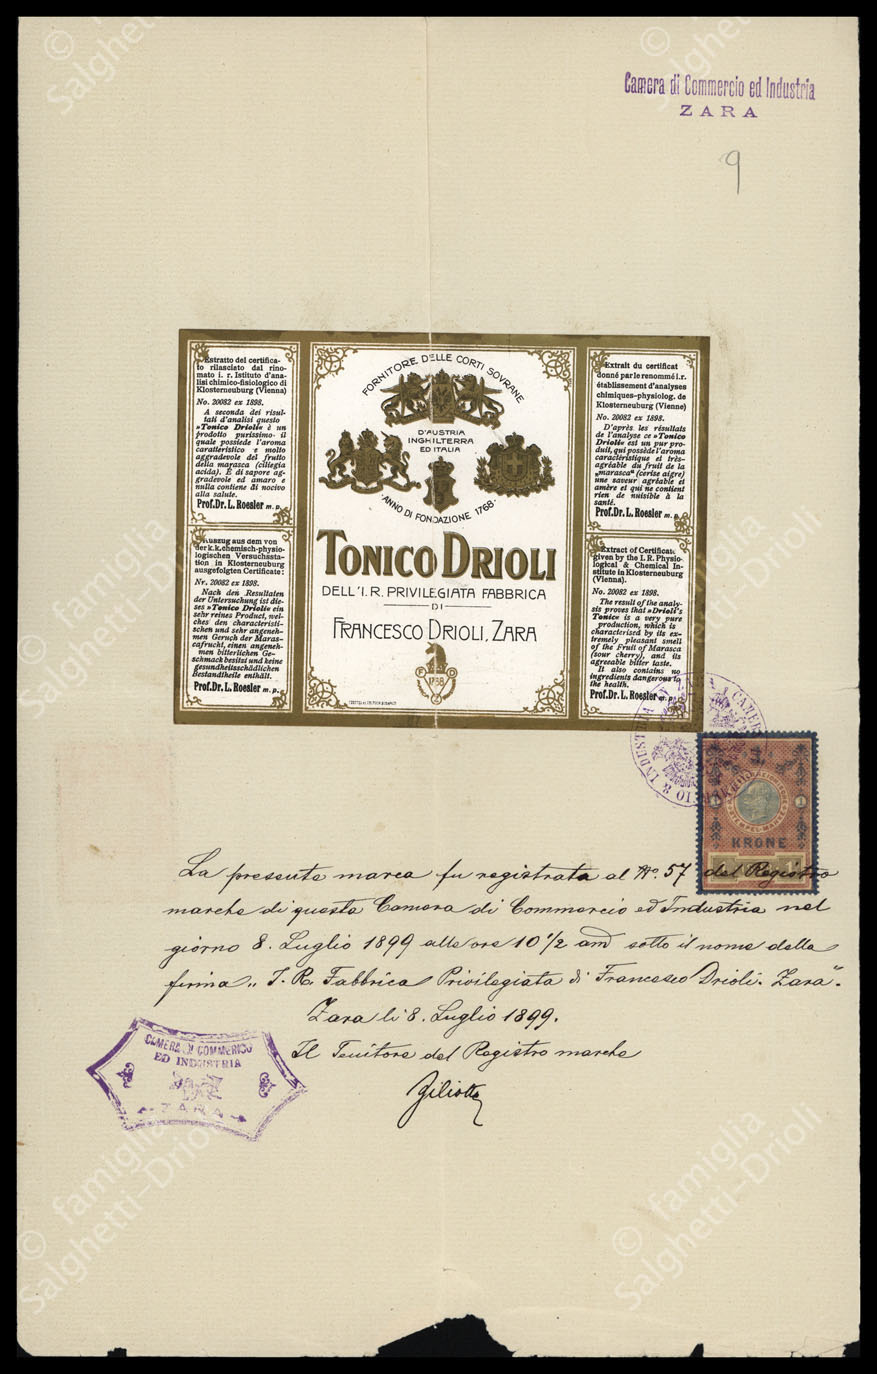 © famiglia
Salghetti-Drioli
Camera di Commercio ed Industria
ZARA
9
Estratto del certifica-
to rilasciato dal rino-
mato i. r. Istituto d'ana-
lisi chimico-fisiologico di
Klosterneuburg (Vienna)
No. 20082 ex 1898.
A seconda dei risul-
tati d'analisi questo
»Tonico Drioli« è un
prodotto purissimo- il
quale possiede l'aroma
caratteristico e molto
aggradevole del frutto
della marasca (ciliegia
acida). È di sapore ag-
gradevole ed amaro e
nulla contiene di nocivo
alla salute.
Prof. Dr. L. Roesler m. p.
Auszug aus dem von
der k. k. chemisch-physio-
logischen Versuchssta-
tion in Klosterneuburg
ausgefolgten Certificate:
Nr. 20082 ex 1898.
Nach den Resultaten
der Untersuchung ist die-
ses »Tonico Drioli« ein
sehr reines Product, wel-
ches den characteristi-
schen und sehr angeneh-
men Geruch der Maras-
cafrucht, einen angeneh-
men bitterlichen Ge-
schmack besitzt und keine
gesundheitsschädlichen
Bestandtheile enthält.
Prof. Dr. L. Roesler m. p.
FORNITORE DELLE CORTI SOVRANE
D'AUSTRIA
INGHILTERRA
ED ITALIA
·ANNO DI FONDAZIONE 1768·
TONICO DRIOLI
DELL'I. R. PRIVILEGIATA FABBRICA
DI
FRANCESCO DRIOLI, ZARA
F D
1768
Extrait du certificat
donné par le renommé i. r.
établissement d'analyses
chimiques-physiolog. de
Klosterneuburg (Vienne)
No. 20082 ex 1898.
D'après les résultats
de l'analyse ce »Tonico
Drioli« est un pur pro-
duit, qui possède l'aroma
caractéristique et très-
agréable du fruit de la
„marasca" (cerise aigre)
une saveur agréable et
amère et qui ne contient
rien de nuisible à la
santé.
Prof. Dr. L. Roesler m. p.
Extract of Certificate
given by the I. R. Physio-
logical & Chemical In-
stitute in Klosterneuburg
(Vienna).
No. 20082 ex 1898.
The result of the analy-
sis proves that »Drioli's
Tonic« is a very pure
production, which is
characterised by its ex-
tremely pleasant smell
of the Fruit of Marasca
(sour cherry), and its
agreeable bitter taste.
It also contains no
ingredients dangerous to
the health.
Prof. Dr. L. Roesler m. p.
1 1
STEMPEL-MARKE
KRONE
La presente marca fu registrata al No. 57 del Registro
marche di questa Camera di Commercio ed Industria nel
giorno 8. Luglio 1899 alle ore 10 1/2 am sotto il nome della
firma „I. R. Fabbrica Privilegiata di Francesco Drioli. Zara".
Zara li 8. Luglio 1899.
Il Tenitore del Registro marche
Ziliotto
CAMERA DI COMMERCIO
ED INDUSTRIA
ZARA
© famiglia
Salghetti-Drioli